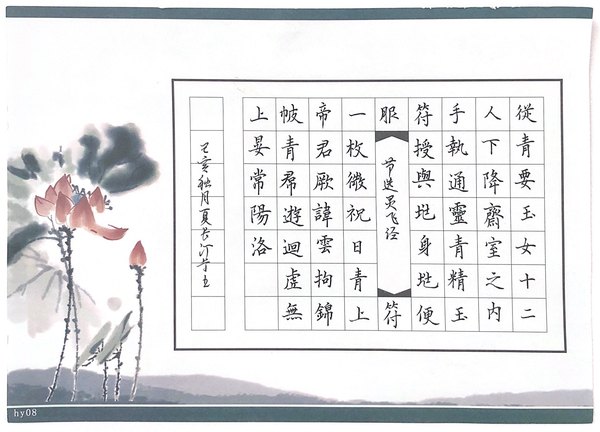 從青要玉女十二
人下降齋室之內
手執通靈青精玉
符授與兆身兆便
服
节选灵飞经
符
一枚微祝曰青上
帝君厥諱雲拘錦
帔青帬遊迴虛無
上晏常陽洛
己亥秋月夏长
hy08